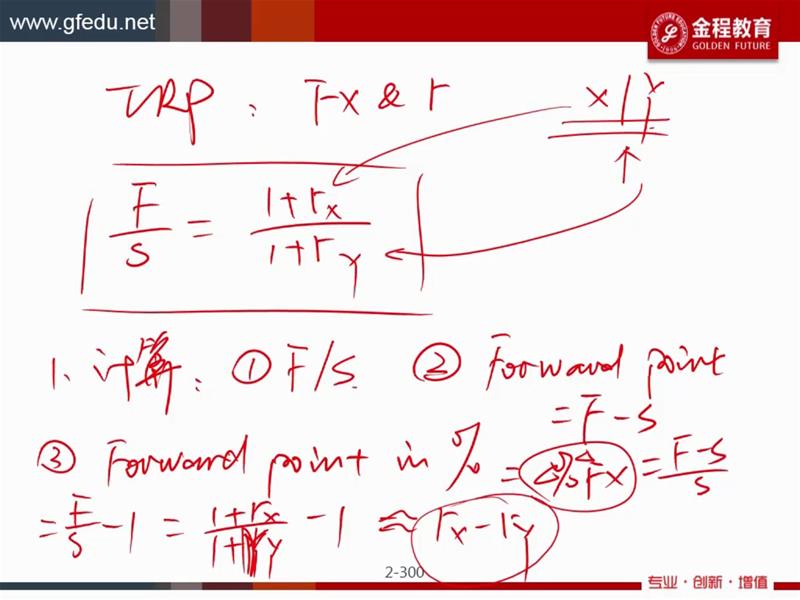 www.gfedu.net
金程教育
GOLDEN FUTURE
IRP: FX & r
x/y
F/S = (1+rx)/(1+ry)
1. 计算: ① F/S. ② Forward point
= F-S
③ Forward point in % = %ΔFX = (F-S)/S
= F/S - 1 = (1+rx)/(1+ry) - 1 ≈ rx - ry
2-300
专业·创新·增值